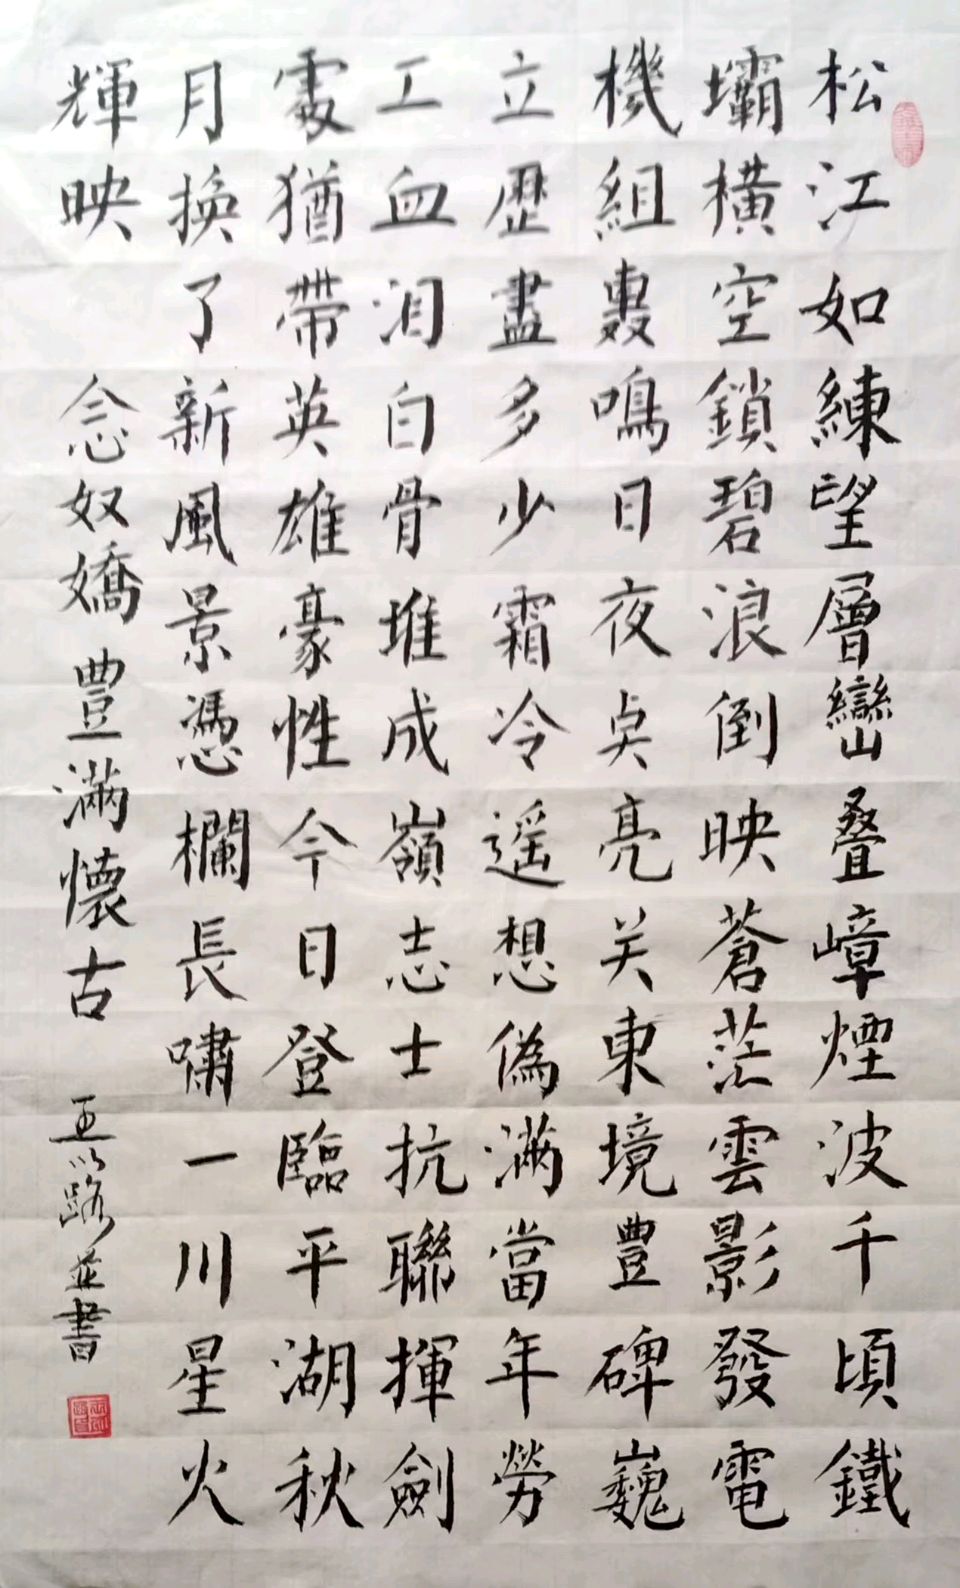 松江如練望層巒叠嶂煙波千頃鐵
壩橫空鎖碧浪倒映蒼茫雲影發電
機組轟鳴日夜点亮关東境豊碑巍
立歷盡多少霜冷遥想偽满當年勞
工血泪白骨堆成嶺志士抗聯揮劍
處猶帶英雄豪性今日登臨平湖秋
月換了新風景憑欄長嘯一川星火
輝映 念奴嬌 豊满懷古 王以路並書